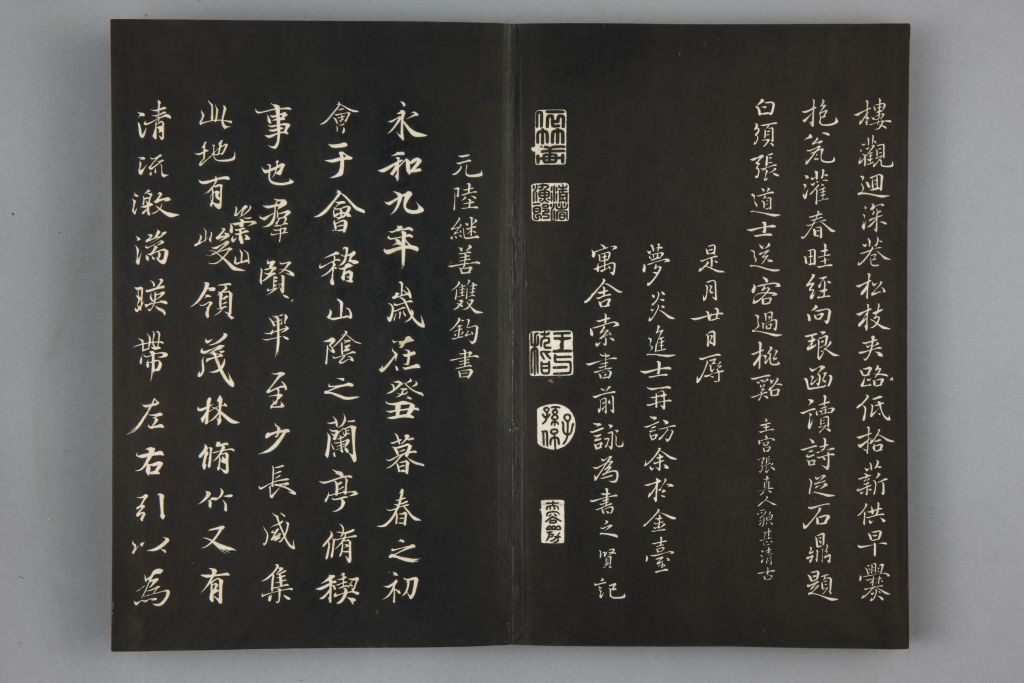 樓觀迴深巷松枝夾路低拾薪供早爨
抱瓮灌春畦經向琅函讀詩從石鼎題
白須張道士送客過桃谿 主宮張真人貌甚清古
是月廿日辱
夢炎進士再訪余於金臺
寓舍索書前詠為書之賢記
子孫保
元陸繼善雙鈎書
永和九年歲在癸丑暮春之初
會于會稽山陰之蘭亭脩稧
事也羣賢畢至少長咸集
此地有峻領茂林脩竹又有
崇山
清流激湍暎帶左右引以為